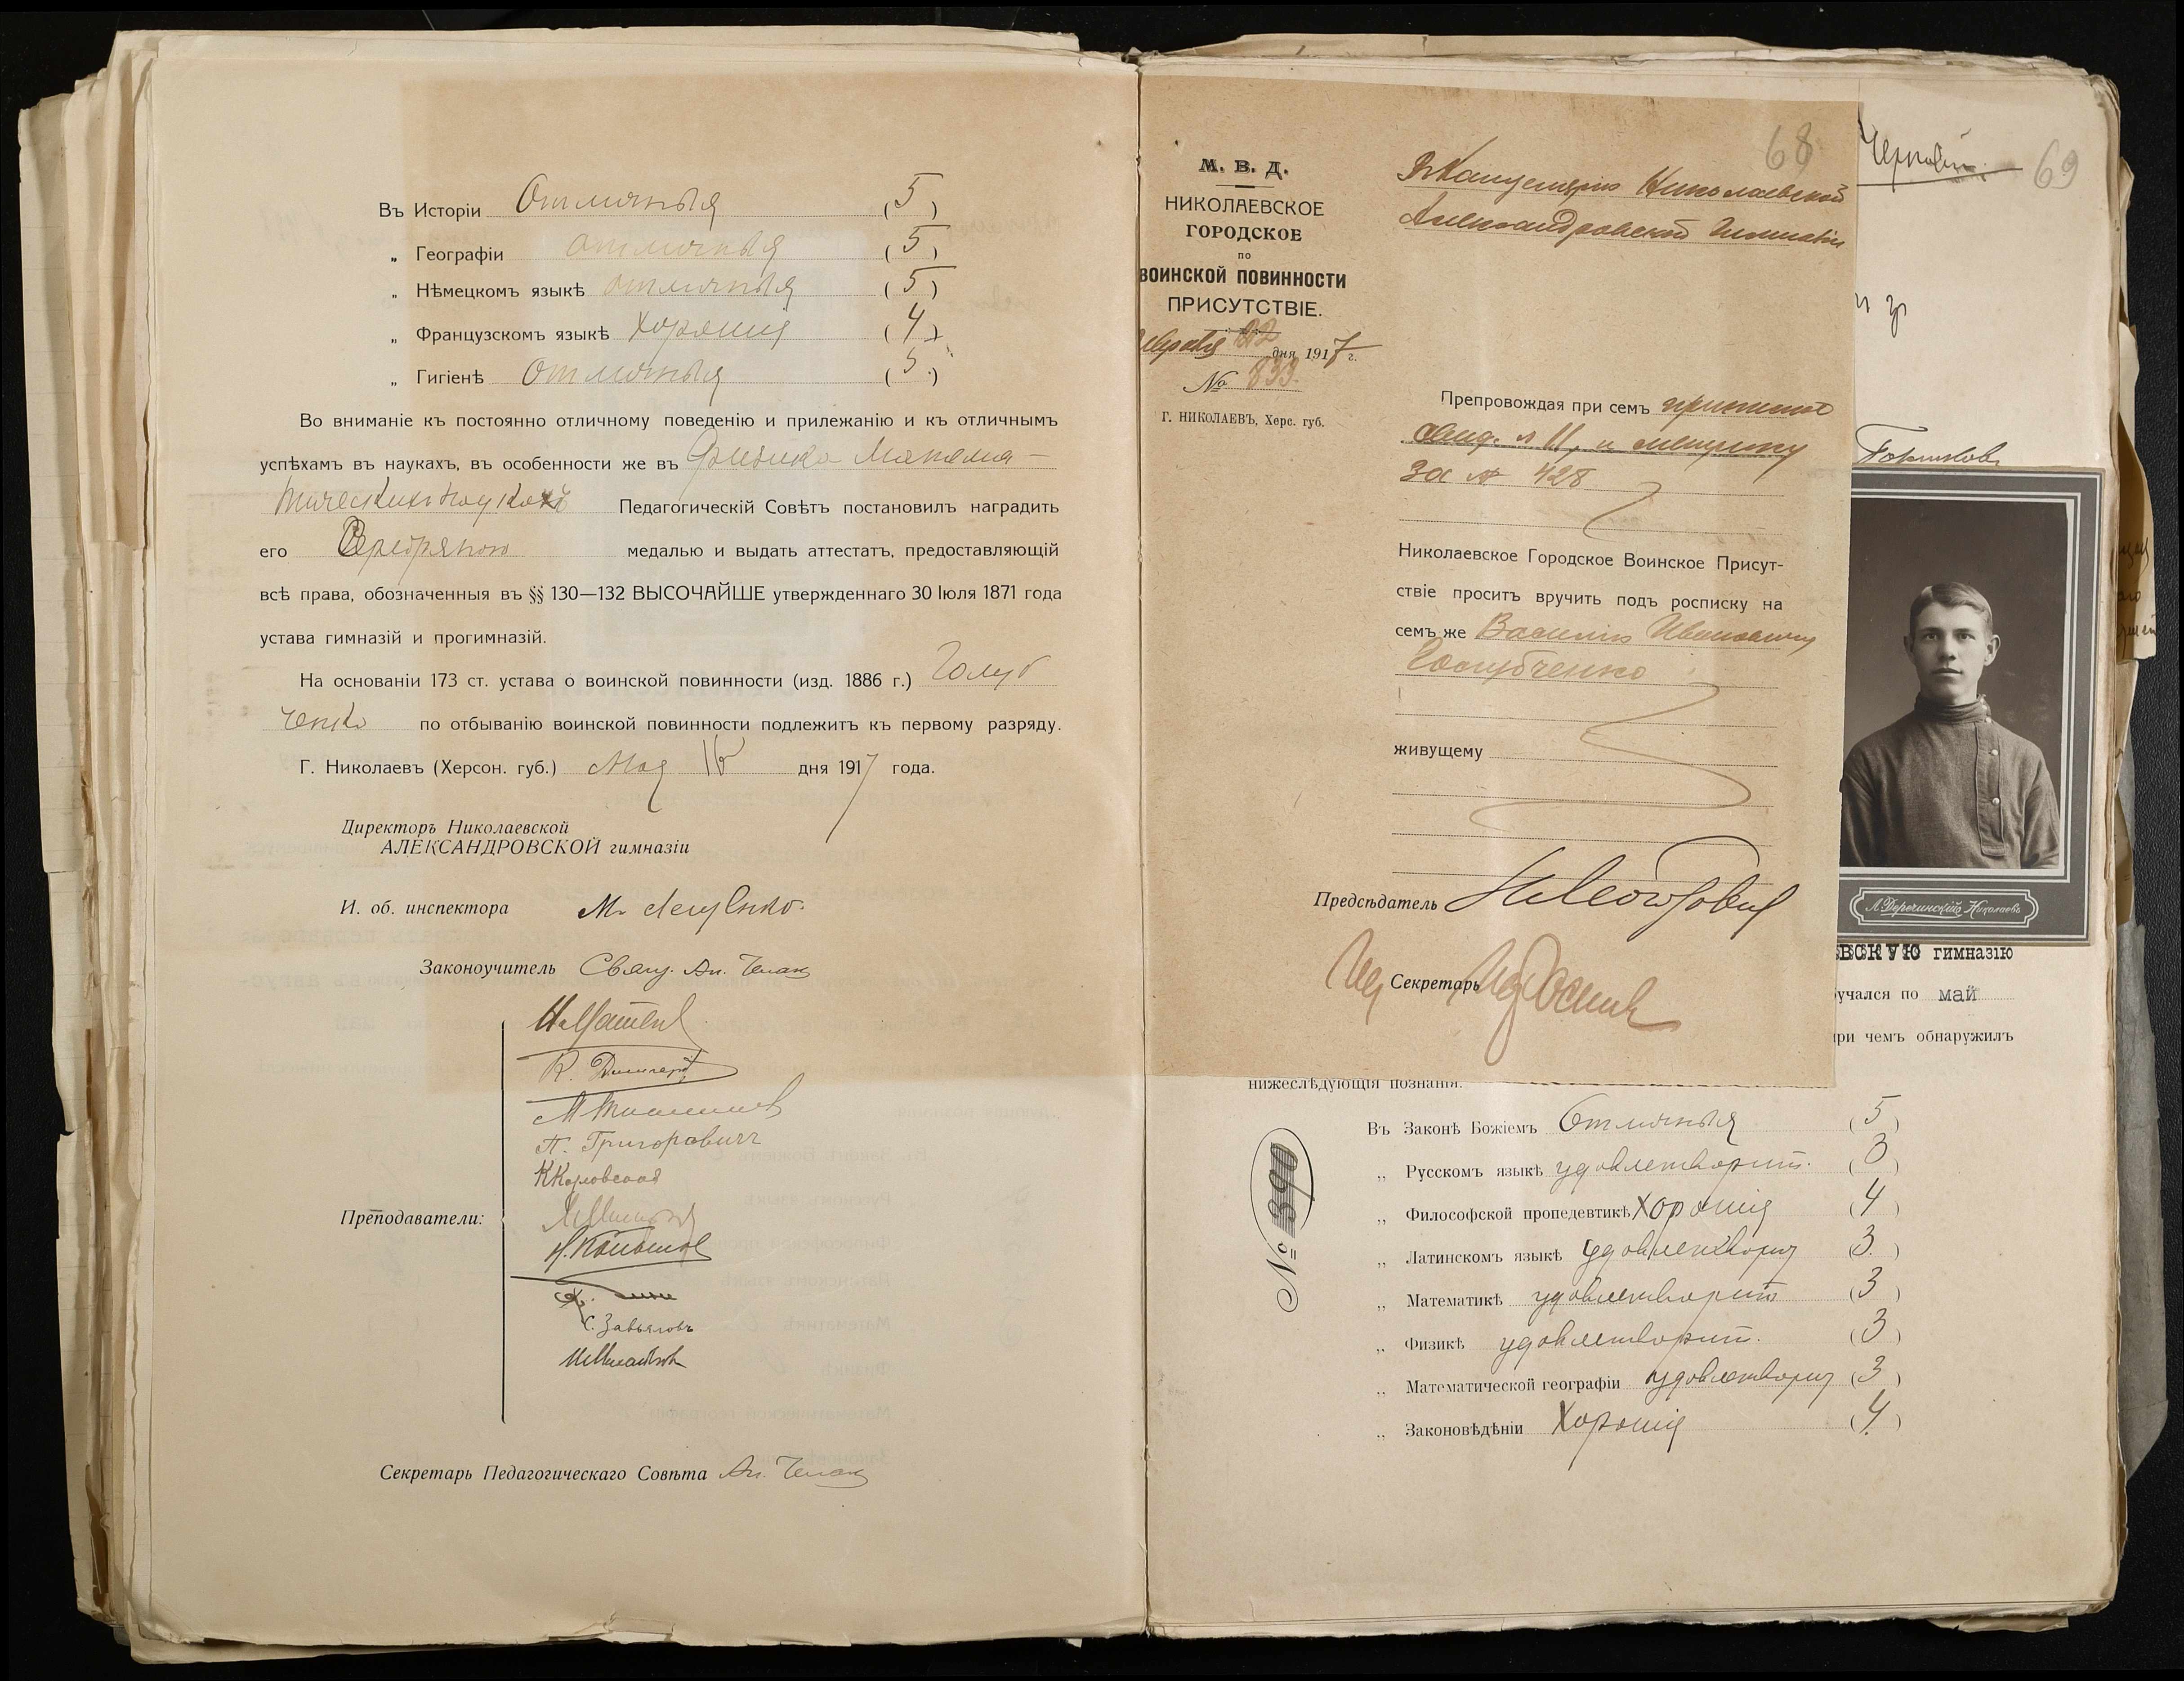 Въ Исторіи Отличныя (5)
„ Географіи отличныя (5)
„ Нѣмецкомъ языкѣ отличныя (5)
„ Французскомъ языкѣ хорошія (4)
„ Гигіенѣ отличныя (5)
Во вниманіе къ постоянно отличному поведенію и прилежанію и къ отличнымъ
успѣхамъ въ наукахъ, въ особенности же въ физико матема-
тическихъ наукахъ Педагогическій Совѣтъ постановилъ наградить
его Серебряною медалью и выдать аттестатъ, предоставляющій
всѣ права, обозначенныя въ §§ 130—132 ВЫСОЧАЙШЕ утвержденнаго 30 Іюля 1871 года
устава гимназій и прогимназій.
На основаніи 173 ст. устава о воинской повинности (изд. 1886 г.) Голуб
ченко по отбыванію воинской повинности подлежитъ къ первому разряду.
Г. Николаевъ (Херсон. губ.) Мая дня 1917 года.
Директоръ Николаевской
АЛЕКСАНДРОВСКОЙ гимназіи
И. об. инспектора М.
Законоучитель Свящ. Ал.
Преподаватели:
П. Григоровичъ
К Козловская
С. Завьяловъ
Секретарь Педагогическаго Совѣта Ал.
68
М. В. Д.
НИКОЛАЕВСКОЕ
ГОРОДСКОЕ
ПО
ВОИНСКОЙ ПОВИННОСТИ
ПРИСУТСТВІЕ.
22 дня 1917 г.
№ 833
Г. НИКОЛАЕВЪ, Херс. губ.
Въ Канцелярію Николаевской
Александровской Гимназіи
Препровождая при семъ приписное
свид. и метрику
за № 428
Николаевское Городское Воинское Присут-
ствіе проситъ вручить подъ росписку на
семъ же Василію Ивановичу
Голубченко
живущему
Предсѣдатель
Секретарь
69
Л. Деречинскій Николаевъ
ВСКУЮ гимназію
учался по май
ри чемъ обнаружилъ
нижеслѣдующія познанія:
№ 390
Въ Законѣ Божіемъ Отличныя (5)
„ Русскомъ языкѣ удовлетворит. (3)
„ Философской пропедевтикѣ Хорошія (4)
„ Латинскомъ языкѣ удовлетвори (3)
„ Математикѣ удовлетворит (3)
„ Физикѣ удовлетворит. (3)
„ Математической географіи удовлетвори (3)
„ Законовѣдѣніи Хорошія (4)